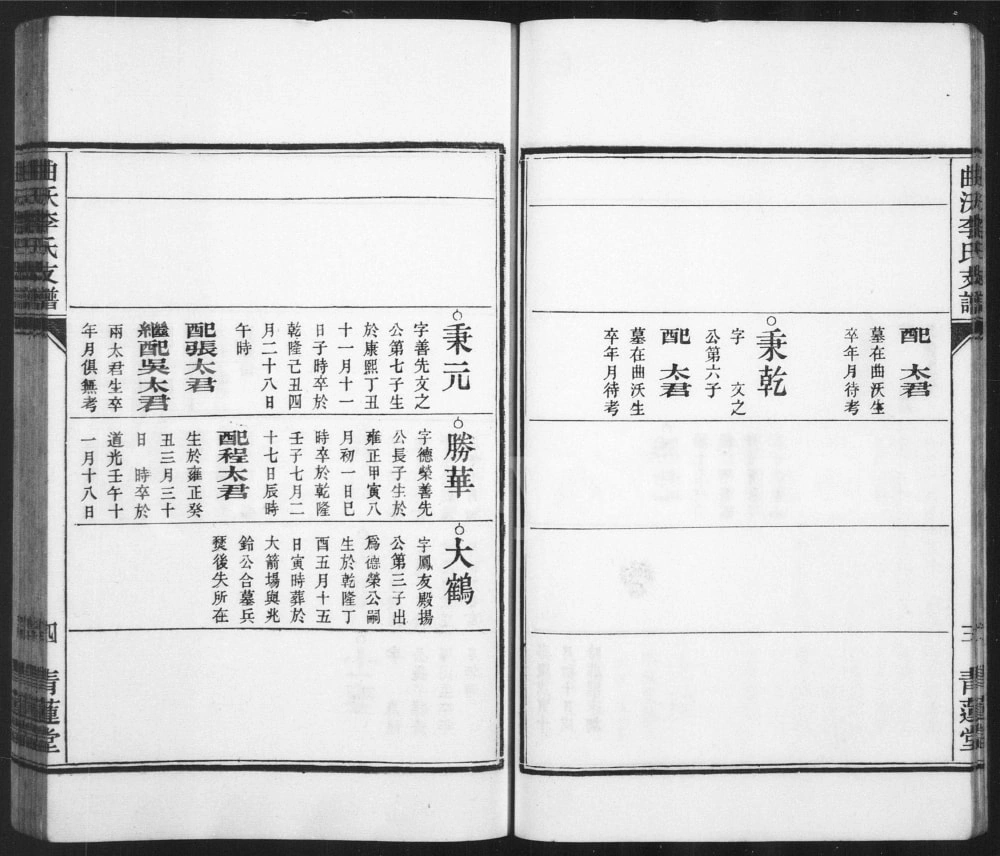 曲沃李氏支譜
三
青蓮堂
配　太君
墓在曲沃生
卒年月待考
秉乾
字　文之
公第六子
配　太君
墓在曲沃生
卒年月待考
秉元
字善先文之
公第七子生
於康熙丁丑
十一月十一
日子時卒於
乾隆己丑四
月二十八日
午時
配張太君
繼配吳太君
兩太君生卒
年月俱無考
勝華
字德榮善先
公長子生於
雍正甲寅八
月初一日巳
時卒於乾隆
壬子七月二
十七日辰時
配程太君
生於雍正癸
丑三月三十
日　時卒於
道光壬午十
一月十八日
大鶴
字鳳友殿揚
公第三子出
爲德榮公嗣
生於乾隆丁
酉五月十五
日寅時葬於
大箭場與兆
鈴公合墓兵
燹後失所在
曲沃李氏支譜
四
青蓮堂